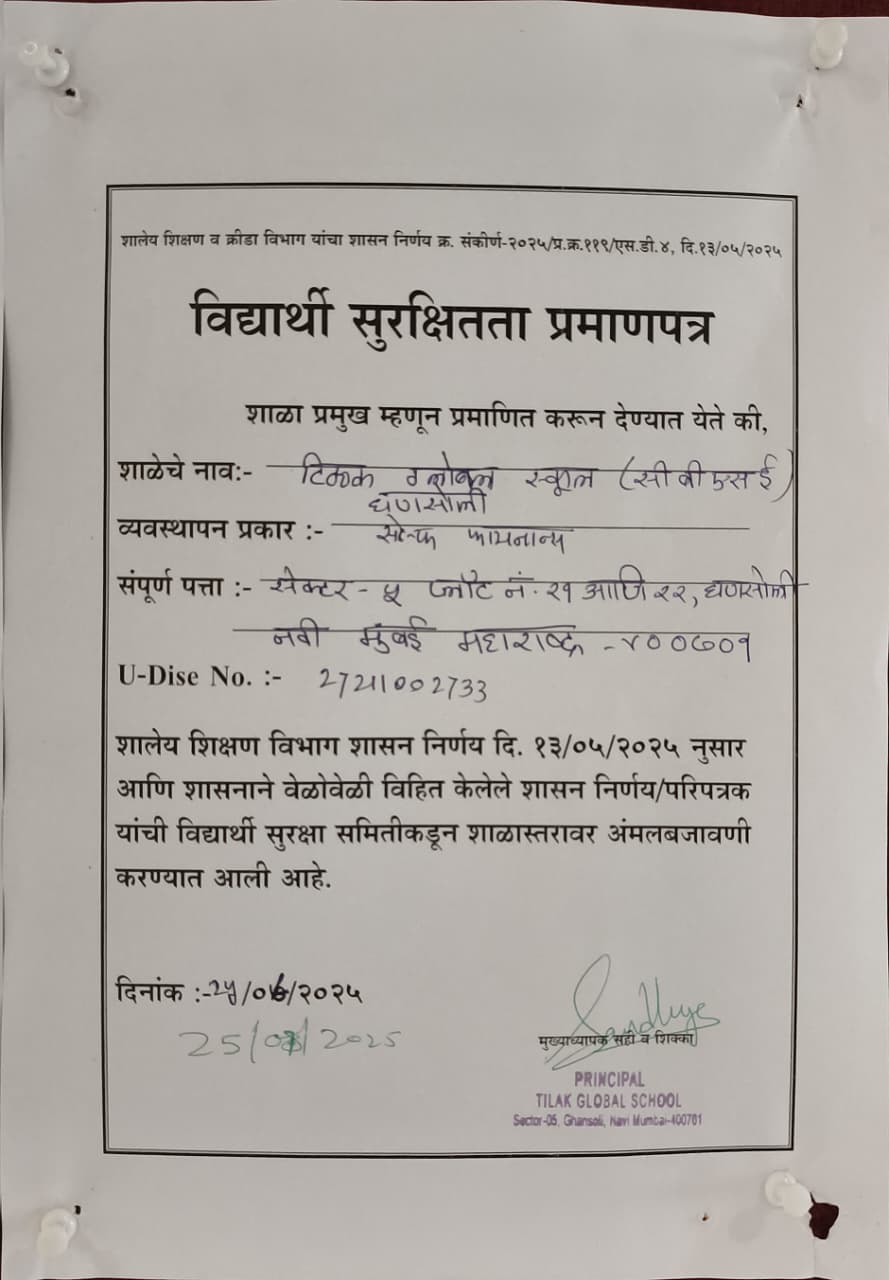 शालेय शिक्षण व क्रीडा विभाग यांचा शासन निर्णय क्र. संकीर्ण-२०२५/प्र.क्र.११९/एस.डी.४, दि.१३/०५/२०२५
विद्यार्थी सुरक्षितता प्रमाणपत्र
शाळा प्रमुख म्हणून प्रमाणित करून देण्यात येते की,
शाळेचे नाव:- टिळक ग्लोबल स्कूल (सीबीएसई)
घणसोली
व्यवस्थापन प्रकार :- सेल्फ फायनान्स
संपूर्ण पत्ता :- सेक्टर - ५ प्लॉट नं. २१ आणि २२, घणसोली
नवी मुंबई महाराष्ट्र - ४००७०१
U-Dise No. :- 27211002733
शालेय शिक्षण विभाग शासन निर्णय दि. १३/०५/२०२५ नुसार
आणि शासनाने वेळोवेळी विहित केलेले शासन निर्णय/परिपत्रक
यांची विद्यार्थी सुरक्षा समितीकडून शाळास्तरावर अंमलबजावणी
करण्यात आली आहे.
दिनांक :-
Sandhya
मुख्याध्यापक सही व शिक्का
PRINCIPAL
TILAK GLOBAL SCHOOL
Sector-05, Ghansoli, Navi Mumbai-400701